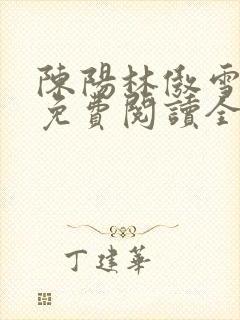 陳陽林傲雪
免費閱讀全
丁建華